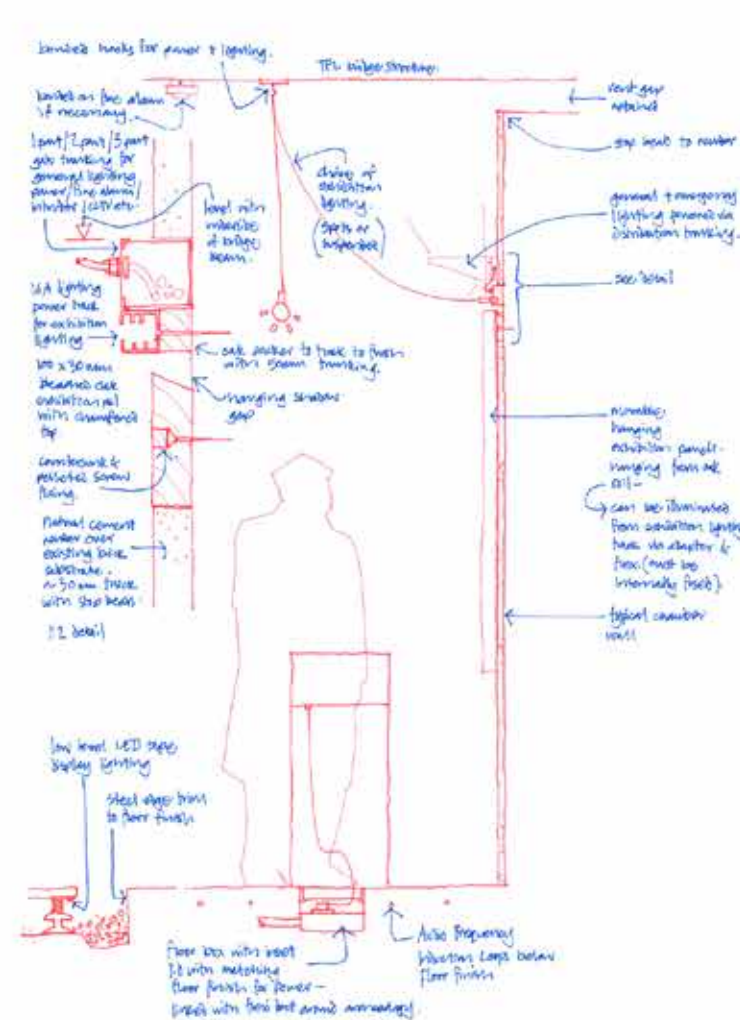 hooks for power + lighting.
TFL bridge structure
vent gap
retained
fire alarm
if necessary
stop bead to render
1 part/2 part/3 part
trunking for
general lighting
power/fire alarm/
level with
underside
of bridge
beam.
choice of
exhibition
lighting.
(spots or
suspended)
general + emergency
lighting powered via
distribution trunking.
see detail
lighting
power track
for exhibition
lighting
oak to track to finish
with trunking.
100 x 30mm
oak
exhibition rail
with chamfered
top
hanging shadow
gap
countersunk &
pelleted screw
fixing.
movable
hanging
exhibition panels
hanging from oak
rail
can be illuminated
from exhibition lighting
track via adaptor &
flex. (must be
internally fused).
Natural cement
render over
existing brick
substrate.
~30mm thick
with stop beads
typical chamber
wall
1:2 detail
low level LED type
display lighting
steel edge trim
to floor finish
floor box with inset
lid with matching
floor finish for power -
Audio Frequency
Induction Loops below
floor finish